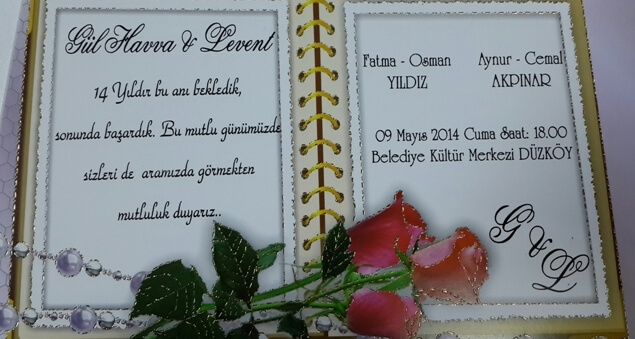 Gül Havva & Levent
14 Yıldır bu anı bekledik,
sonunda başardık. Bu mutlu günümüzde
sizleri de aramızda görmekten
mutluluk duyarız..
Fatma - Osman
YILDIZ
Aynur - Cemal
AKPINAR
09 Mayıs 2014 Cuma Saat: 18.00
Belediye Kültür Merkezi DÜZKÖY
G & L